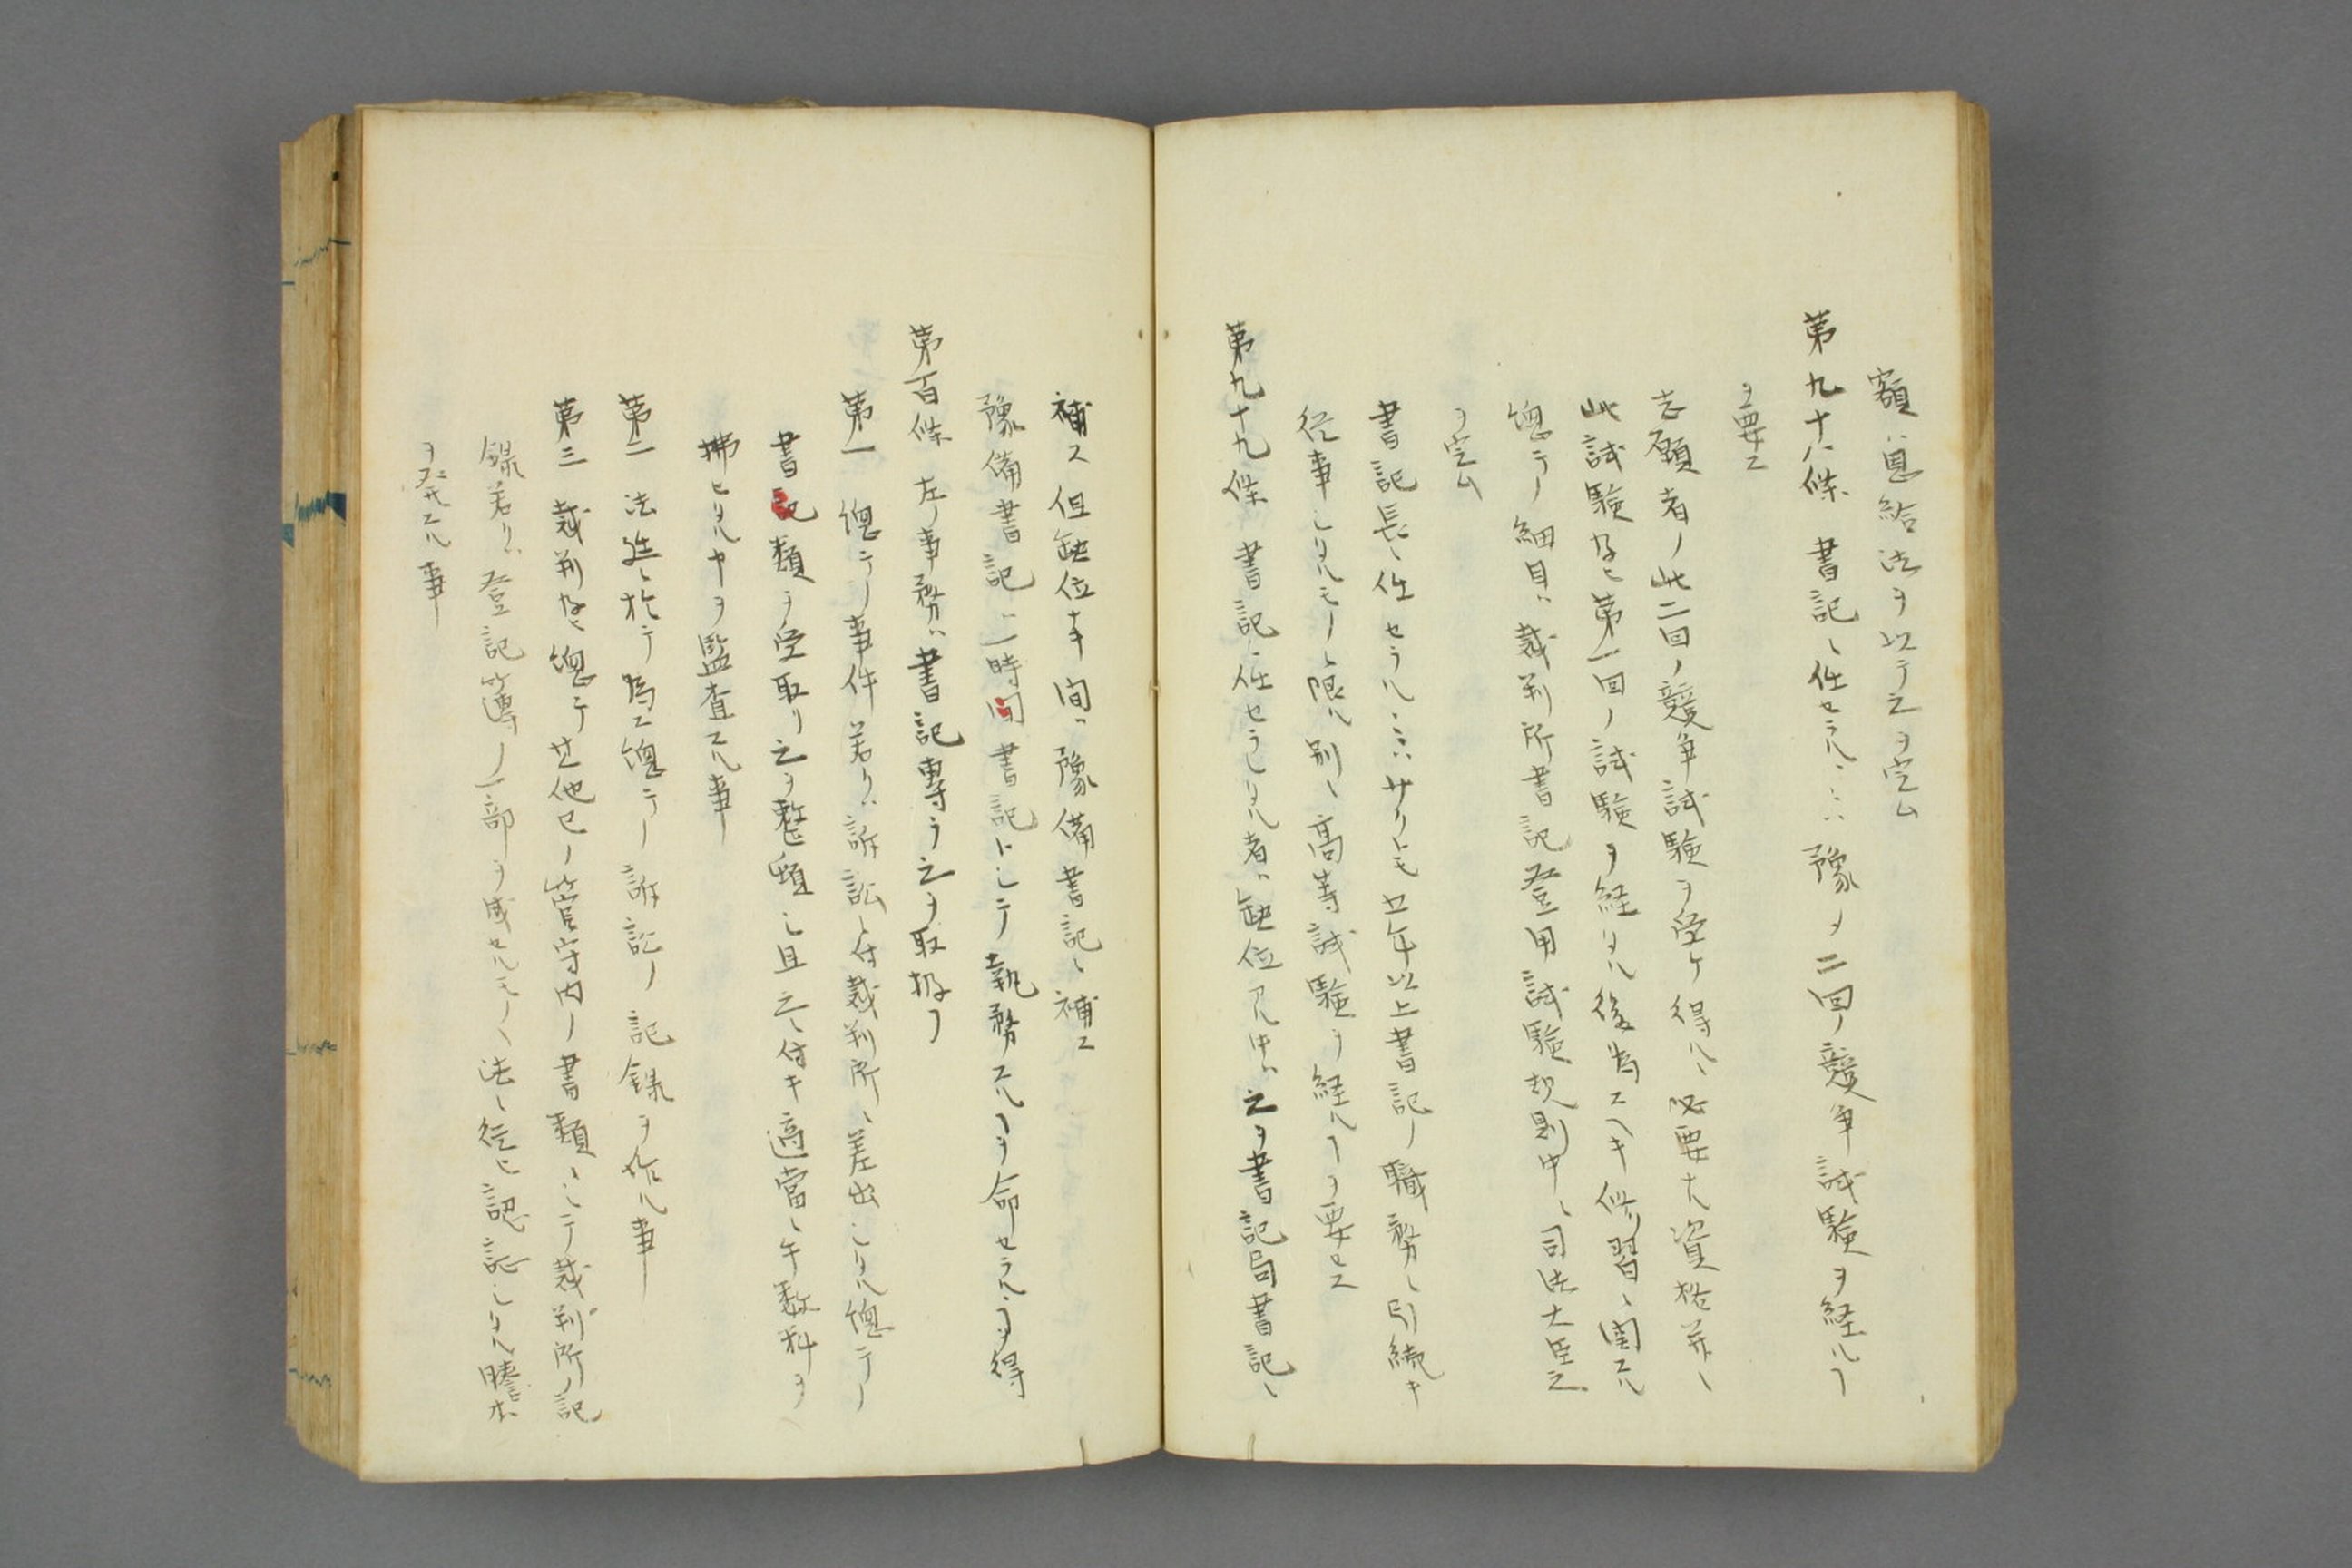 額ハ恩給法ヲ以テ之ヲ定ム
第九十八條 書記ニ任セラルヽニハ豫メ二回ノ競争試験ヲ経ルヿ
ヲ要ス
志願者ノ此二回ノ競争試験ヲ受ケ得ルニ必要ナ資格并ニ
此試験及ヒ第一回ノ試験ヲ経タル後為スヘキ修習ニ関スル
總テノ細目ハ裁判所書記登用試験規則中ニ司法大臣之
ヲ定ム
書記長ニ任セラルヽニハ少クトモ五年以上書記ノ職務ニ引続キ
従事シタルモノニ限ル別ニ高等試験ヲ経ルヿヲ要セス
第九十九條 書記ニ任セラレタル者ハ缺位アル中ハ之ヲ書記局書記ニ
補ス但缺位ナキ間ハ豫備書記ニ補ス
豫備書記ハ一時間書記トシテ執務スルヿヲ命セラルヽヿヲ得
第百條 左ノ事務ハ書記専ラ之ヲ取扱フ
第一 總テノ事件若クハ訴訟ニ付裁判所ニ差出シタル總テノ
書記類ヲ受取リ之ヲ整頓シ且之ニ付キ適當ニ手数料ヲ
拂ヒタルヤヲ監査スル事
第二 法廷ニ於テ為ス總テノ訴訟ノ記録ヲ作ル事
第三 裁判及ヒ總テ其他ノ管守内ノ書類ニシテ裁判所ノ記
録若クハ登記簿ノ一部ヲ成セルモノヽ法ニ従ヒ認証シタル謄本
ヲ発スル事